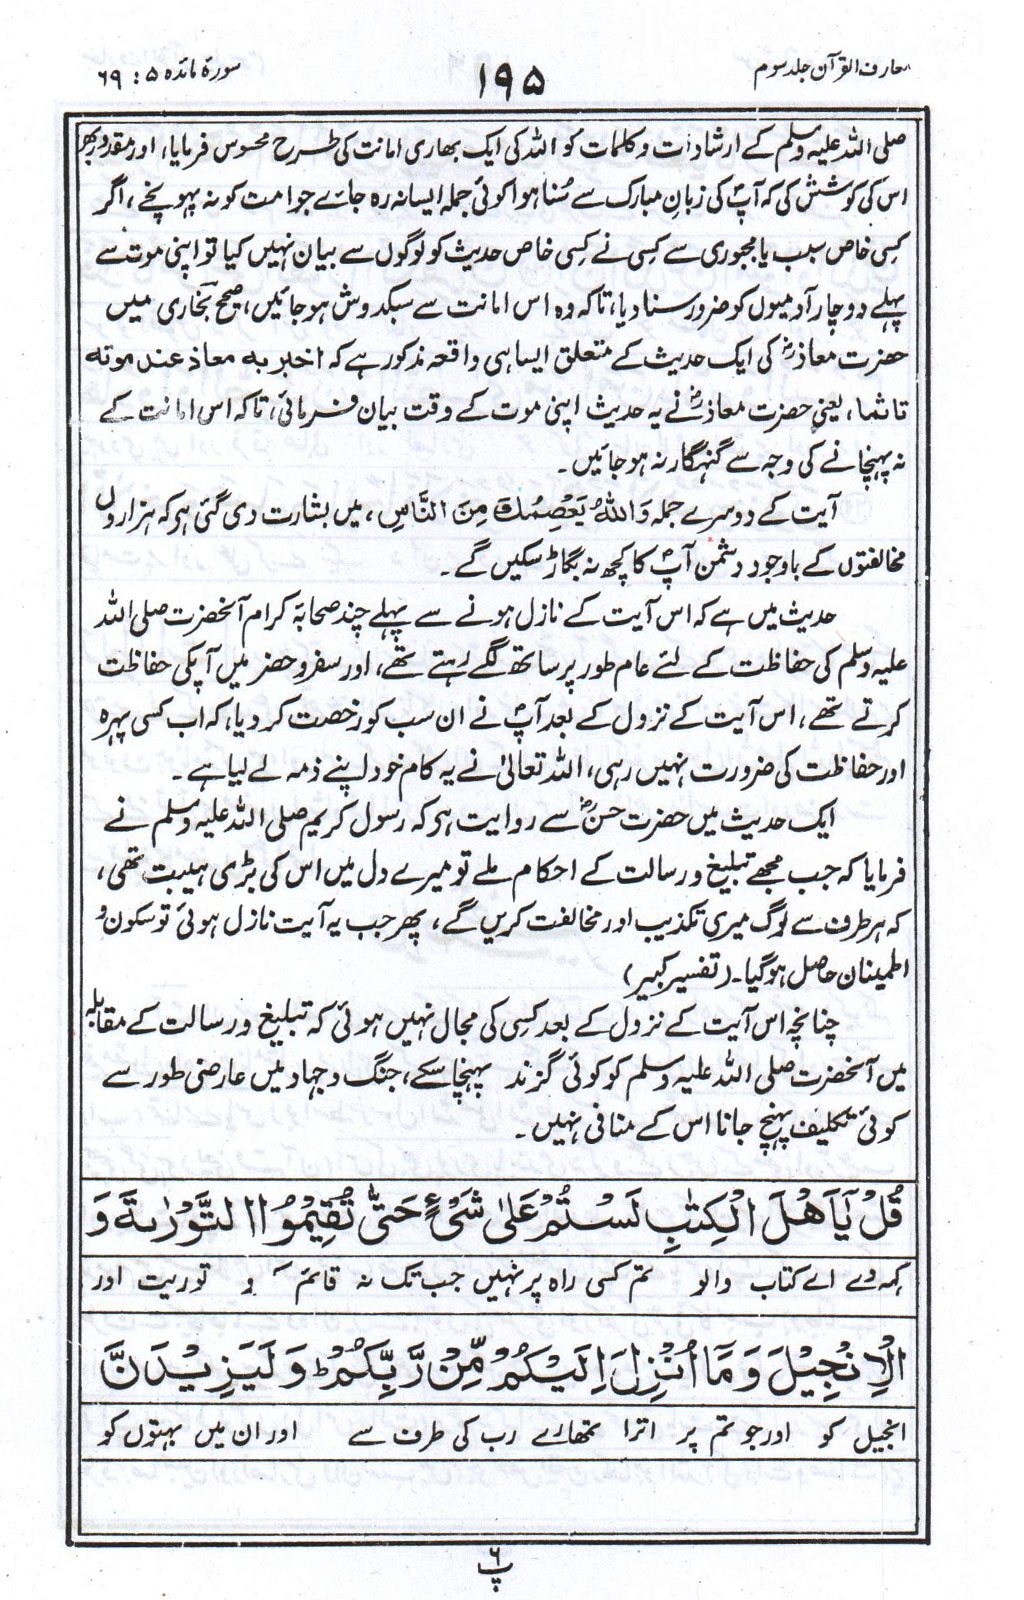 معارف القرآن جلد سوم
۱۹۵
سورۂ مائدہ ۵ : ۶۹
صلی اللہ علیہ وسلم کے ارشادات و کلمات کو اللہ کی ایک بھاری امانت کی طرح محسوس فرمایا، اور مقدور بھر
اس کی کوشش کی کہ آپؐ کی زبانِ مبارک سے سُنا ہوا کوئی جملہ ایسا نہ رہ جائے جو امت کو نہ پہونچے، اگر
کسی خاص سبب یا مجبوری سے کسی نے کسی خاص حدیث کو لوگوں سے بیان نہیں کیا تو اپنی موت سے
پہلے دو چار آدمیوں کو ضرور سنا دیا، تاکہ وہ اس امانت سے سبکدوش ہو جائیں، صحیح بخاری میں
حضرت معاذؓ کی ایک حدیث کے متعلق ایسا ہی واقعہ مذکور ہے کہ اخبر بہ معاذ عند موتہ
تاثما، یعنی حضرت معاذؓ نے یہ حدیث اپنی موت کے وقت بیان فرمائی، تاکہ اس امانت کے
نہ پہنچانے کی وجہ سے گنہگار نہ ہو جائیں۔
آیت کے دوسرے جملہ وَاللّٰهُ يَعْصِمُكَ مِنَ النَّاسِ، میں بشارت دی گئی ہو کہ ہزاروں
مخالفتوں کے باوجود دشمن آپؐ کا کچھ نہ بگاڑ سکیں گے۔
حدیث میں ہے کہ اس آیت کے نازل ہونے سے پہلے چند صحابۂ کرام آنحضرت صلی اللہ
علیہ وسلم کی حفاظت کے لئے عام طور پر ساتھ لگے رہتے تھے، اور سفر و حضر میں آپکی حفاظت
کرتے تھے، اس آیت کے نزول کے بعد آپؐ نے ان سب کو رخصت کر دیا، کہ اب کسی پہرہ
اور حفاظت کی ضرورت نہیں رہی، اللہ تعالیٰ نے یہ کام خود اپنے ذمہ لے لیا ہے۔
ایک حدیث میں حضرت حسنؓ سے روایت ہو کہ رسول کریم صلی اللہ علیہ وسلم نے
فرمایا کہ جب مجھے تبلیغ و رسالت کے احکام ملے تو میرے دل میں اس کی بڑی ہیبت تھی،
کہ ہر طرف سے لوگ میری تکذیب اور مخالفت کریں گے، پھر جب یہ آیت نازل ہوئی تو سکون و
اطمینان حاصل ہو گیا۔ (تفسیر کبیر)
چنانچہ اس آیت کے نزول کے بعد کسی کی مجال نہیں ہوئی کہ تبلیغ و رسالت کے مقابلہ
میں آنحضرت صلی اللہ علیہ وسلم کو کوئی گزند پہنچا سکے، جنگ و جہاد میں عارضی طور سے
کوئی تکلیف پہنچ جانا اس کے منافی نہیں۔
قُلْ يٰٓاَهْلَ الْكِتٰبِ لَسْتُمْ عَلٰى شَیْءٍ حَتّٰى تُقِيْمُوا التَّوْرٰىةَ وَ
کہہ دے اے کتاب والو تم کسی راہ پر نہیں جب تک نہ قائم کرو توریت اور
الْاِنْجِيْلَ وَمَآ اُنْزِلَ اِلَيْكُمْ مِّنْ رَّبِّكُمْ ؕ وَلَيَزِيْدَنَّ
انجیل کو اور جو تم پر اترا تمھارے رب کی طرف سے اور ان میں بہتوں کو
پ ۶